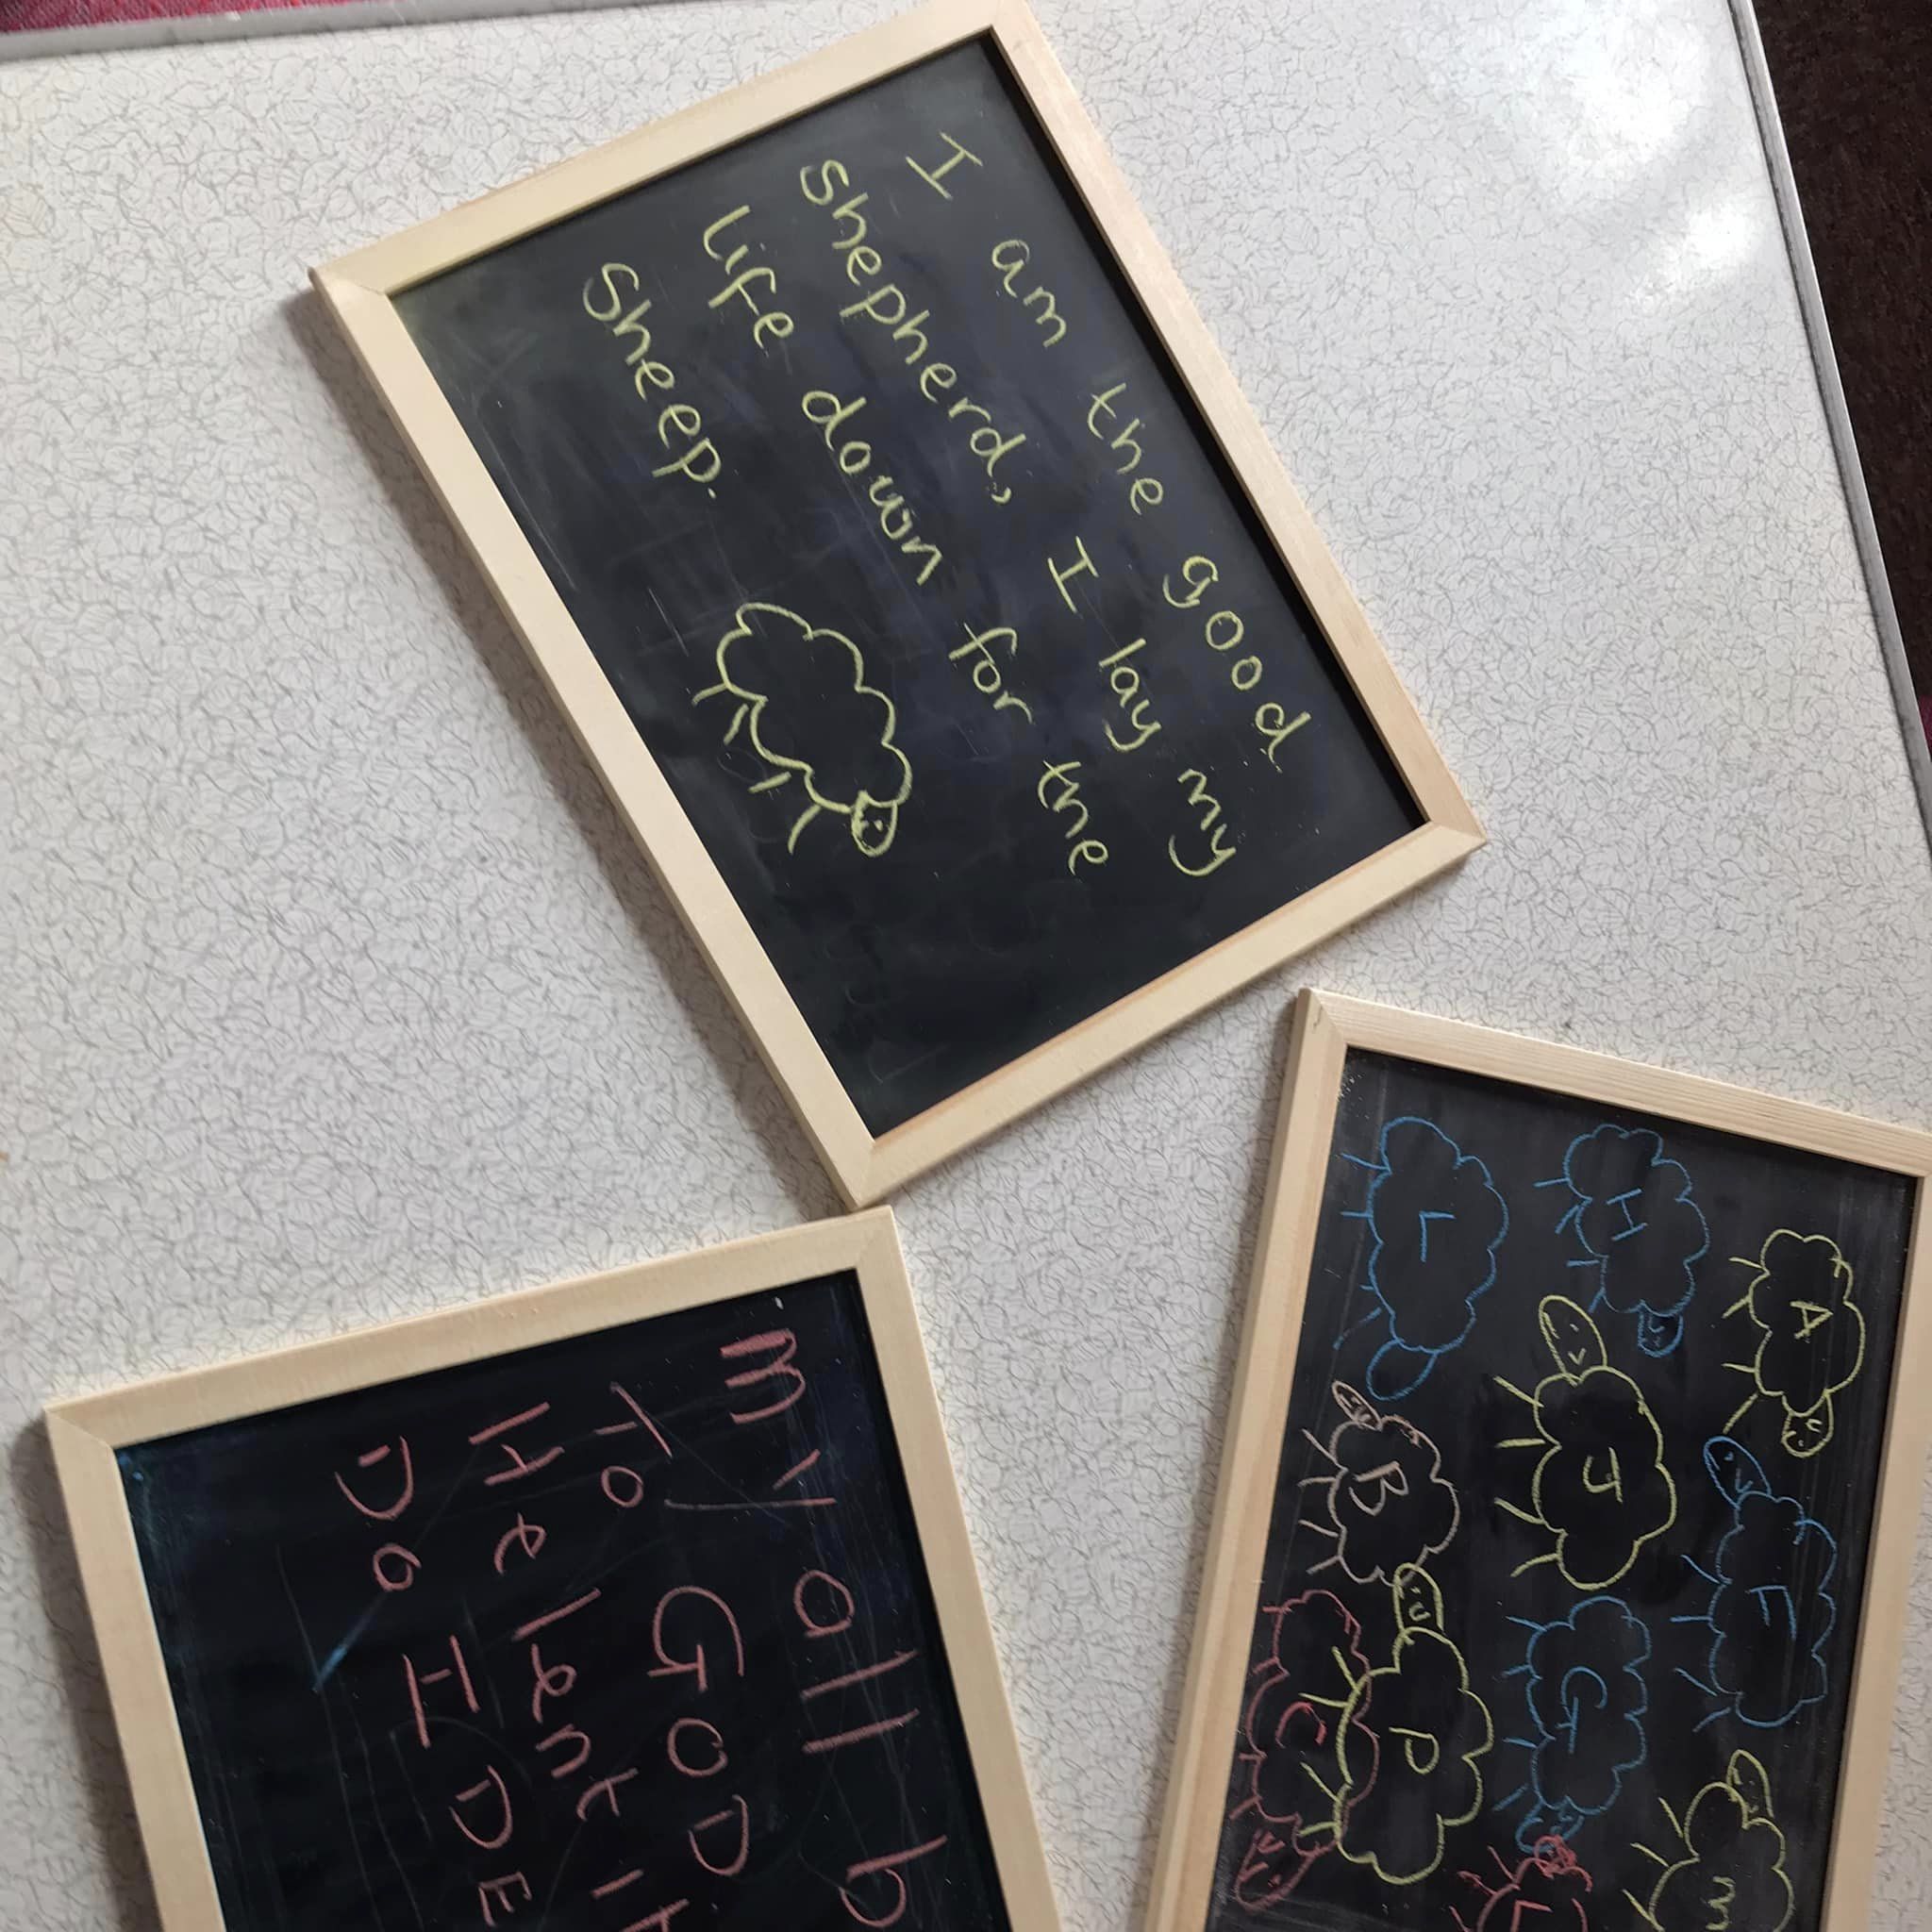 I am the good
shepherd, I lay my
life down for the
sheep.
A
H
L
F
4
D
3
G
P
C
L
My all b
To GOD
He lent it
Do I DE